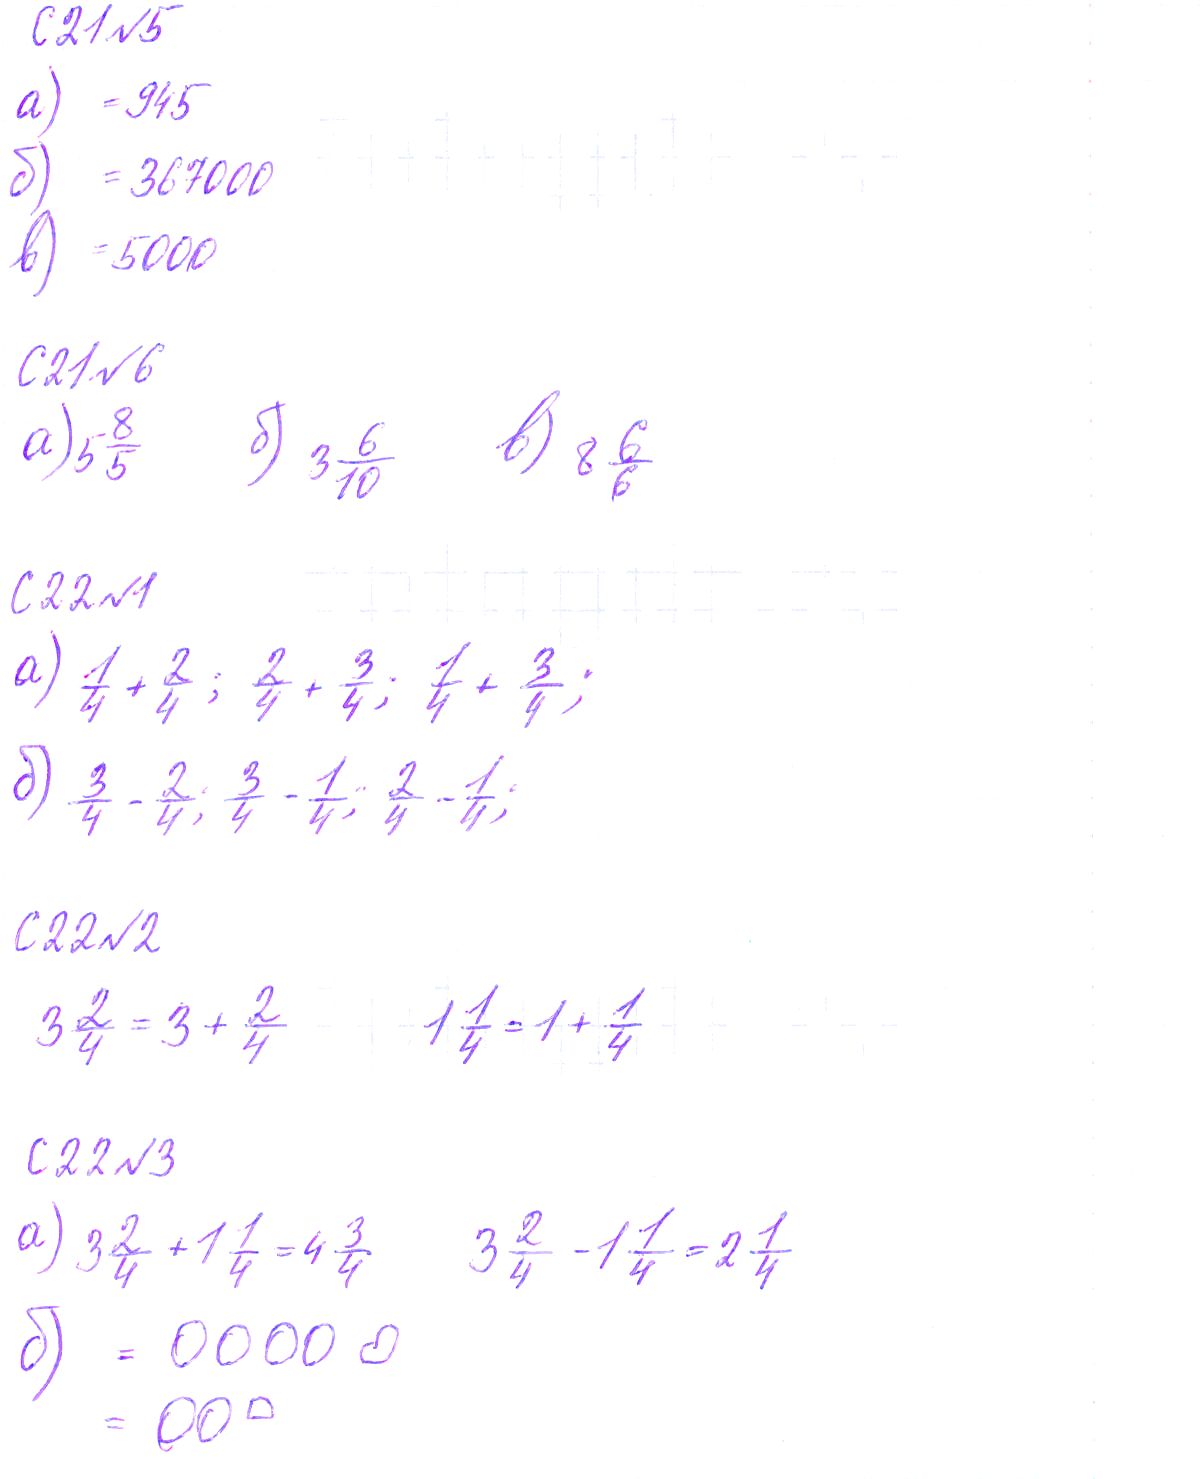 С21№5
а) =945
б) =367000
в) =5000
С21№6
а) 5 8/5 б) 3 6/10 в) 8 6/6
С22№1
а) 1/4 + 2/4; 2/4 + 3/4; 1/4 + 3/4;
б) 3/4 - 2/4; 3/4 - 1/4; 2/4 - 1/4;
С22№2
3 2/4 = 3 + 2/4 1 1/4 = 1 + 1/4
С22№3
а) 3 2/4 + 1 1/4 = 4 3/4 3 2/4 - 1 1/4 = 2 1/4
б) =
=